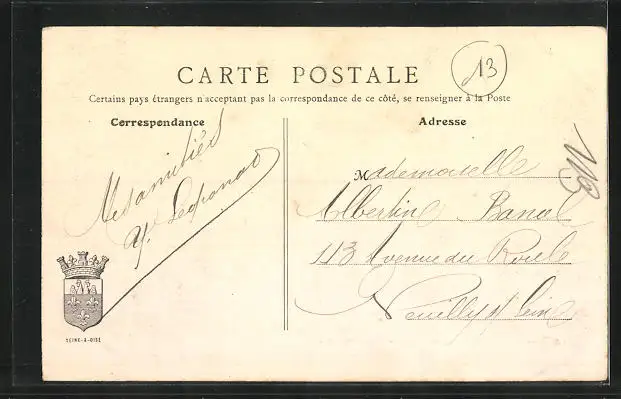 13
CARTE POSTALE
Certains pays étrangers n'acceptant pas la correspondance de ce côté, se renseigner à la Poste
Correspondance
Mes amitiés
Adresse
Mademoiselle
Albertine Banal
113 Avenue du Roule
Neuilly s/ Seine
SEINE-&-OISE